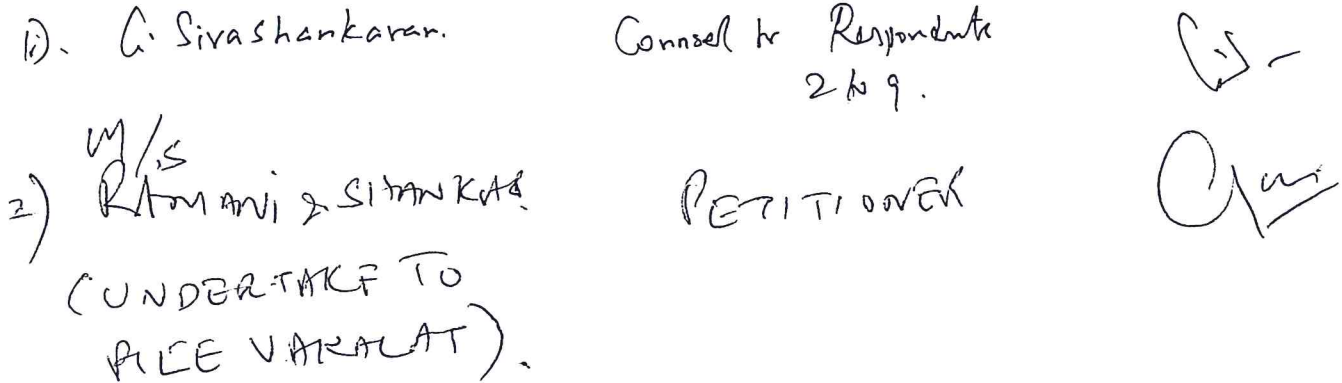 1). G. Sivashankaran. Counsel for Respondents
2 to 9.
2) M/s
RAMANI & SHANKAR PETITIONER
(UNDERTAKE TO
FILE VAKALAT).